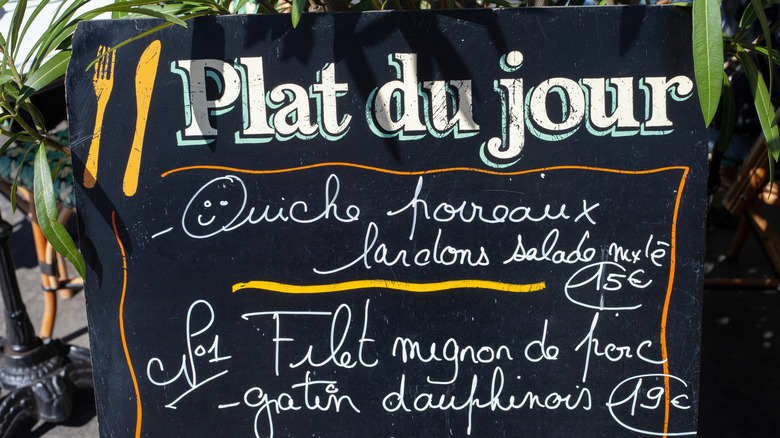 Plat du jour
- Quiche poireaux
lardons salade mixte
15€
N°1 Filet mignon de porc
- gratin dauphinois 19€